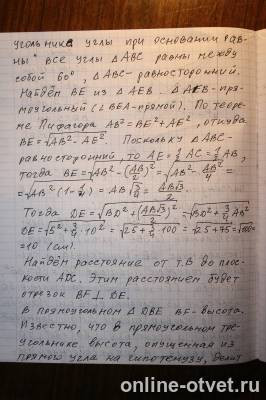 угольнике углы при основании рав-
ны" все углы △ABC равны между
собой 60°, △ABC-равносторонний.
Найдём BE из △AEB. △AEB-пря-
моугольный (∠BEA-прямой). По теоре-
ме Пифагора AB²=BE²+AE², откуда
BE=√AB²-AE². Поскольку △ABC-
равносторонний, то AE=½AC=½AB,
тогда BE=√AB²-(AB/2)²=√AB²-AB²/4=
=√AB²(1-¼)=AB√3/4=AB√3/2.
Тогда DE=√BD²+(AB√3/2)²=√BD²+3/4AB²
DE=√5²+3/4·10²=√25+3/4·100=√25+75=√100=
=10 (см).
Найдём расстояние от т.B до плос-
кости ADC. Этим расстоянием будет
отрезок BF⊥DE.
В прямоугольном △DBE BF-высота.
Известно, что в прямоугольном тре-
угольнике высота, опущенная из
прямого угла на гипотенузу, делит
online-otvet.ru